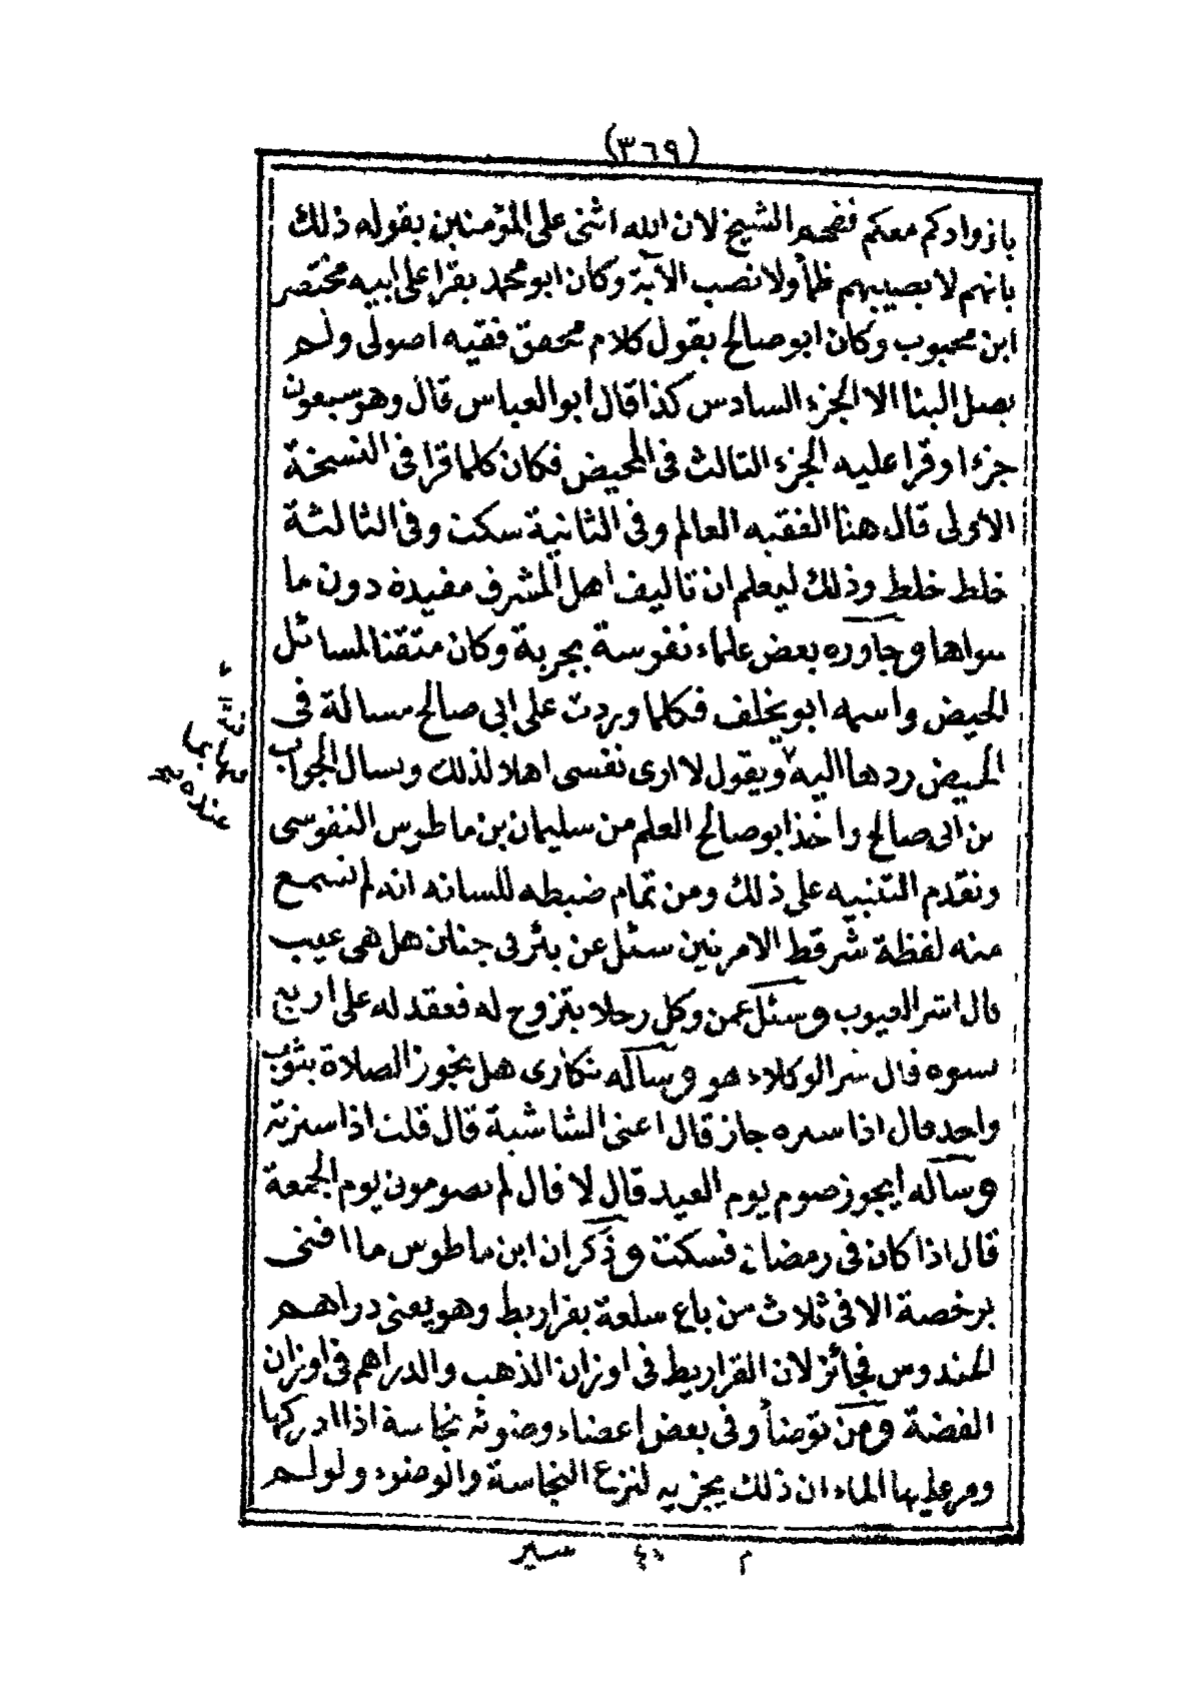 (٣٦٩)
بازوادكم معكم فضحهم الشيخ لان الله اثنى على المؤمنين بقوله ذلك
بانهم لا يصيبهم ظمأ ولا نصب الآية وكان ابو محمد يقرا على ابيه مختصر
ابن محبوب وكان ابو صالح يقول كلام محقق فقيه اصولى ولم
يصل الينا الا الجزء السادس كذا قال ابو العباس قال وهو سبعون
جزءا وقرا عليه الجزء الثالث فى المحيض فكان كلما قرا فى النسخة
الاولى قال هذا الفقيه العالم وفى الثانية سكت وفى الثالثة
خلط خلط وذلك ليعلم ان تاليف اهل المشرق مفيدة دون ما
سواها وجاوره بعض علماء نفوسة بجربة وكان متقنا لمسائل
الحيض واسمه ابو يخلف فكلما وردت على ابى صالح مسالة فى
الحيض ردها اليه ويقول لا ارى نفسى اهلا لذلك ويسال الجواب
من ابى صالح واخذ ابو صالح العلم من سليمان بن ماطوس النفوسى
وتقدم التنبيه على ذلك ومن تمام ضبطه للسانه انه لم تسمع
منه لفظة شر قط الا مرتين سئل عن بئر فى جنان هل هى عيب
قال اشر العيوب وسئل عمن وكل رجلا يتزوج له فعقد له على اربع
نسوة قال شر الوكلاء هو وساله نكارى هل يجوز الصلاة بثوب
واحد قال اذا ستره جاز قال اعنى الشاشية قال قلت اذا سترته
وساله ايجوز صوم يوم العيد قال لا قال لم تصومون يوم الجمعة
قال اذا كان فى رمضان فسكت وذكر ان ابن ماطوس ما افتى
برخصة الا فى ثلاث من باع سلعة بقراريط وهو يعنى دراهم
الحندوس فجائز لان القراريط فى اوزان الذهب والدراهم فى اوزان
الفضة ومن توضأ وفى بعض اعضاء وضوئه نجاسة اذا ادركها
ومر عليها الماء ان ذلك يجزيه لنزع النجاسة والوضوء ولو لم
عنده
م سير